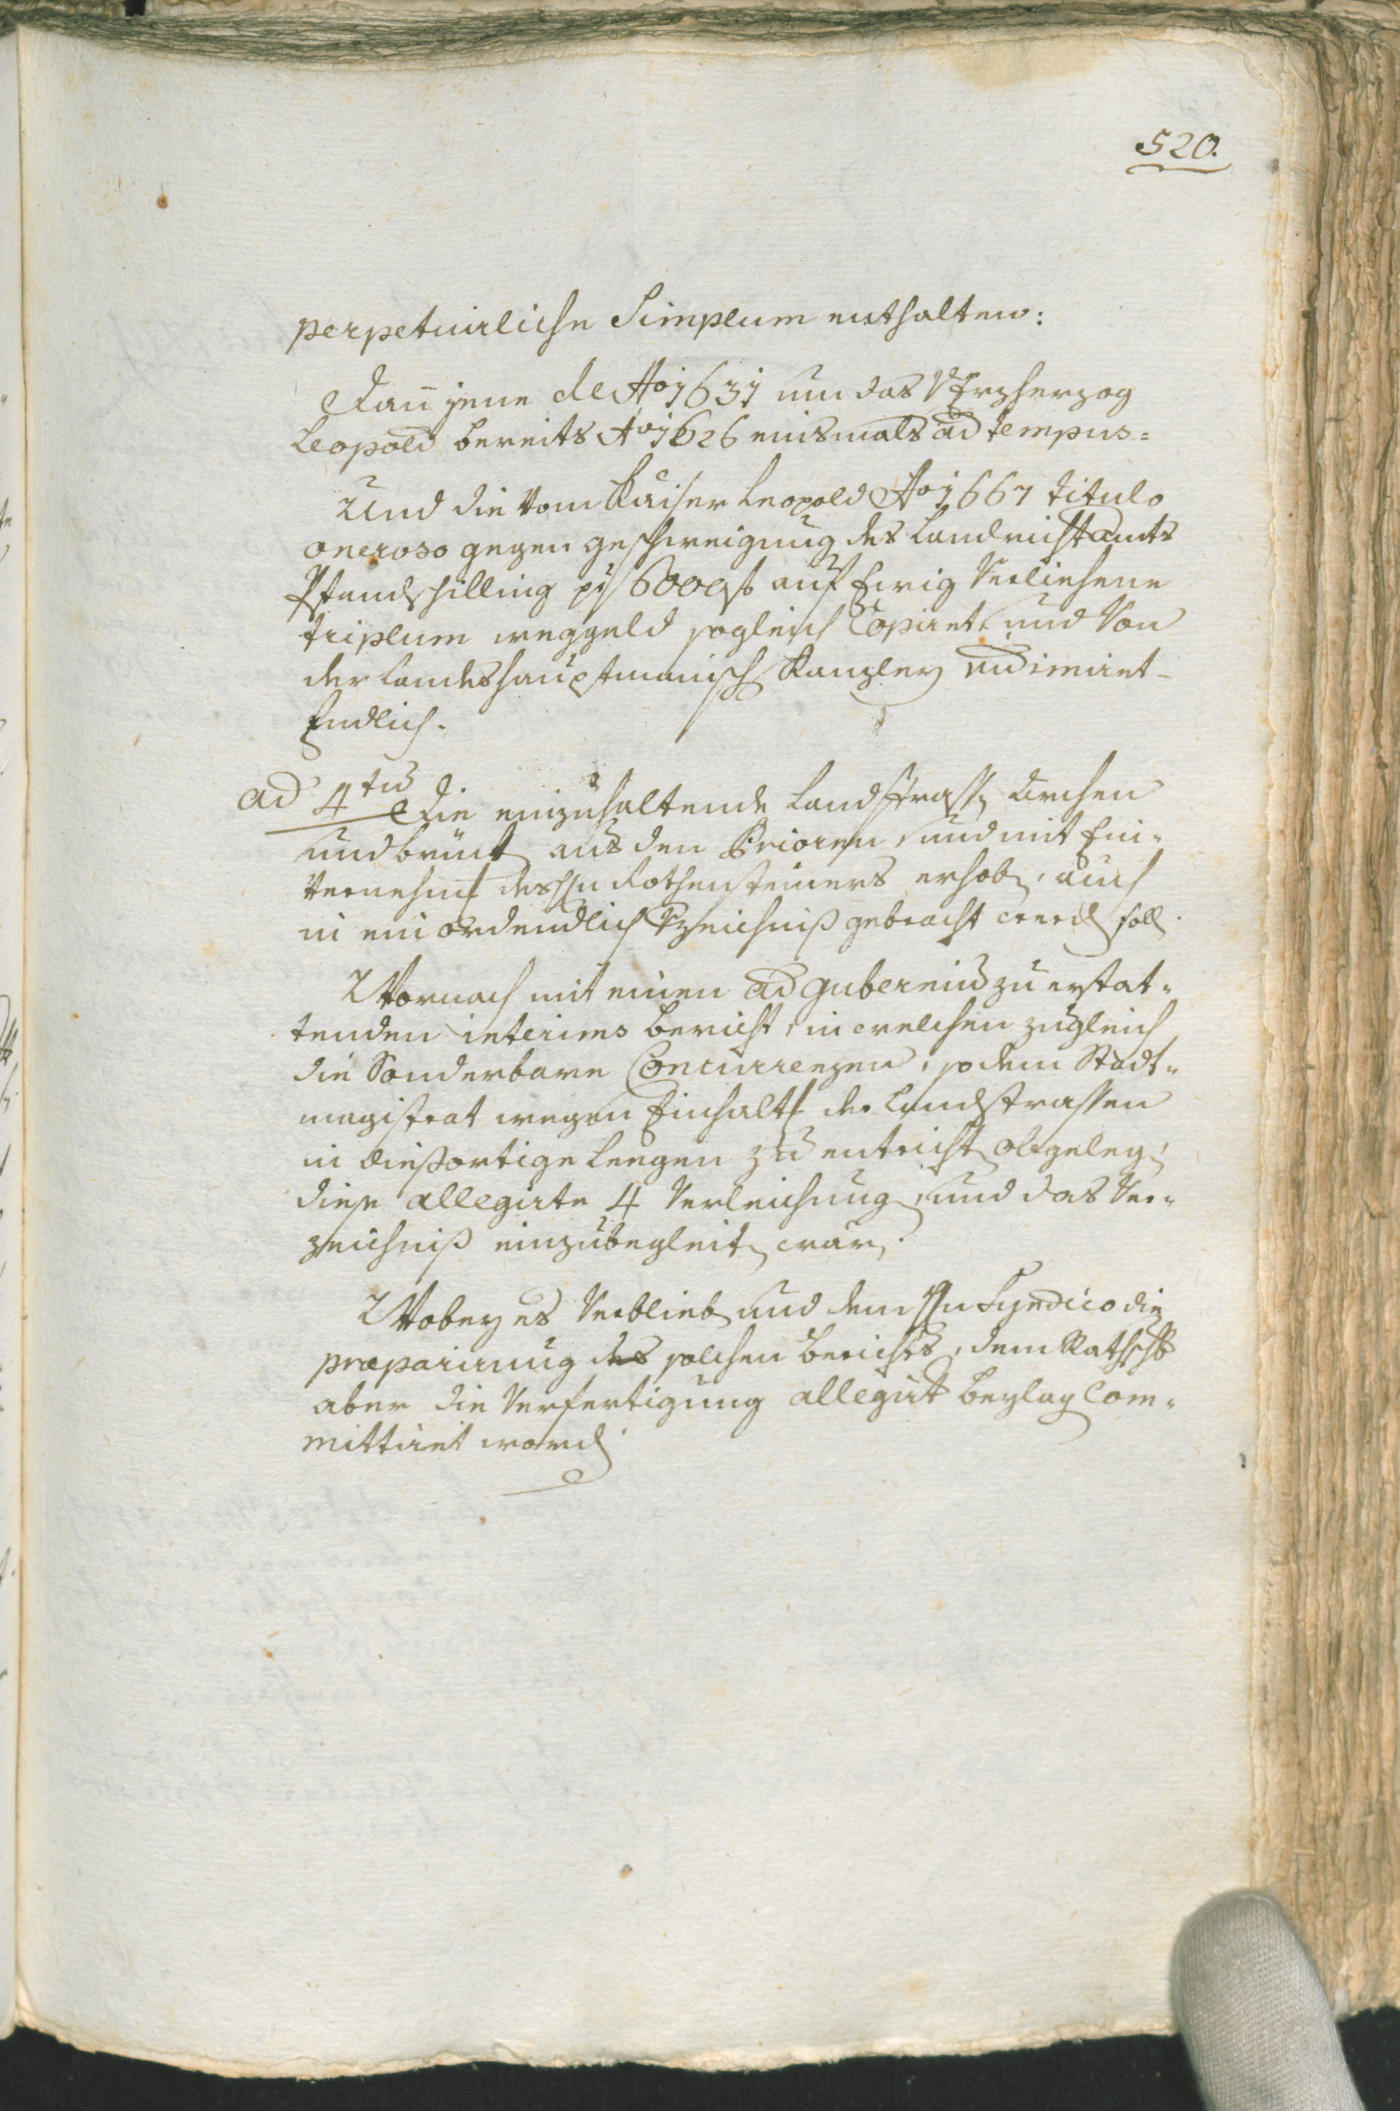 520.
perpetuirliche Simplum enthalten:
Dan̄ jene de Ao 1631 um das Erzherzog
Leopold bereits Ao 1626 eins mals ad tempus=
Und die vom Kaiser Leopold Ao 1667 titulo
oneroso gegen geschweigung des Landrichtamts
Pfandschilling pr 6000 f auf Ewig verliehene
triplum weggeld sogleich Copiret, und von
der Landeshauptmanisch Kanzley vidimiret
Endlich.
ad 4tus Die einzuhaltende Landstrass, Archen
und bruck aus den Prioren, und mit Ein-
vernehm des Hn Rothensteiners erhob, auch
in ein ordendlich Verzeichniß gebracht werd soll.
Wornach mit einen ad gubernium zu erstat-
tenden interims bericht, in welchen zugleich
die Sonderbare Concurrenzen, so dem Stadt-
magistrat wegen Einhalt der Landstrassen
in dießortige Leegen zu entricht obgeleg,
diese allegirte 4 Verleichung, und das Ver-
zeichniß einzubegleit, wär,.
Wobey es verblieb, und dem Hn Syndico die
præparirung des solchen berichts, dem Rathsch
aber die Verfertigung allegirt beylag Com-
mittiret word